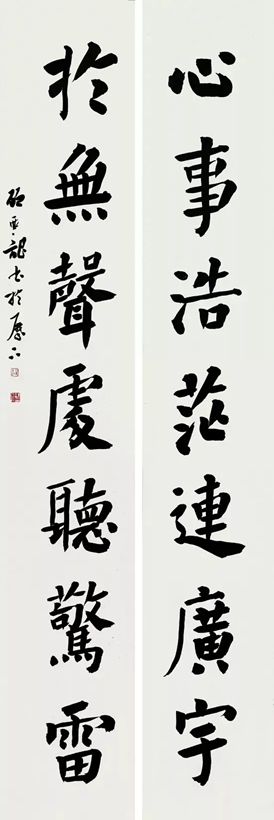 心事浩茫連廣宇
於無聲處聽驚雷